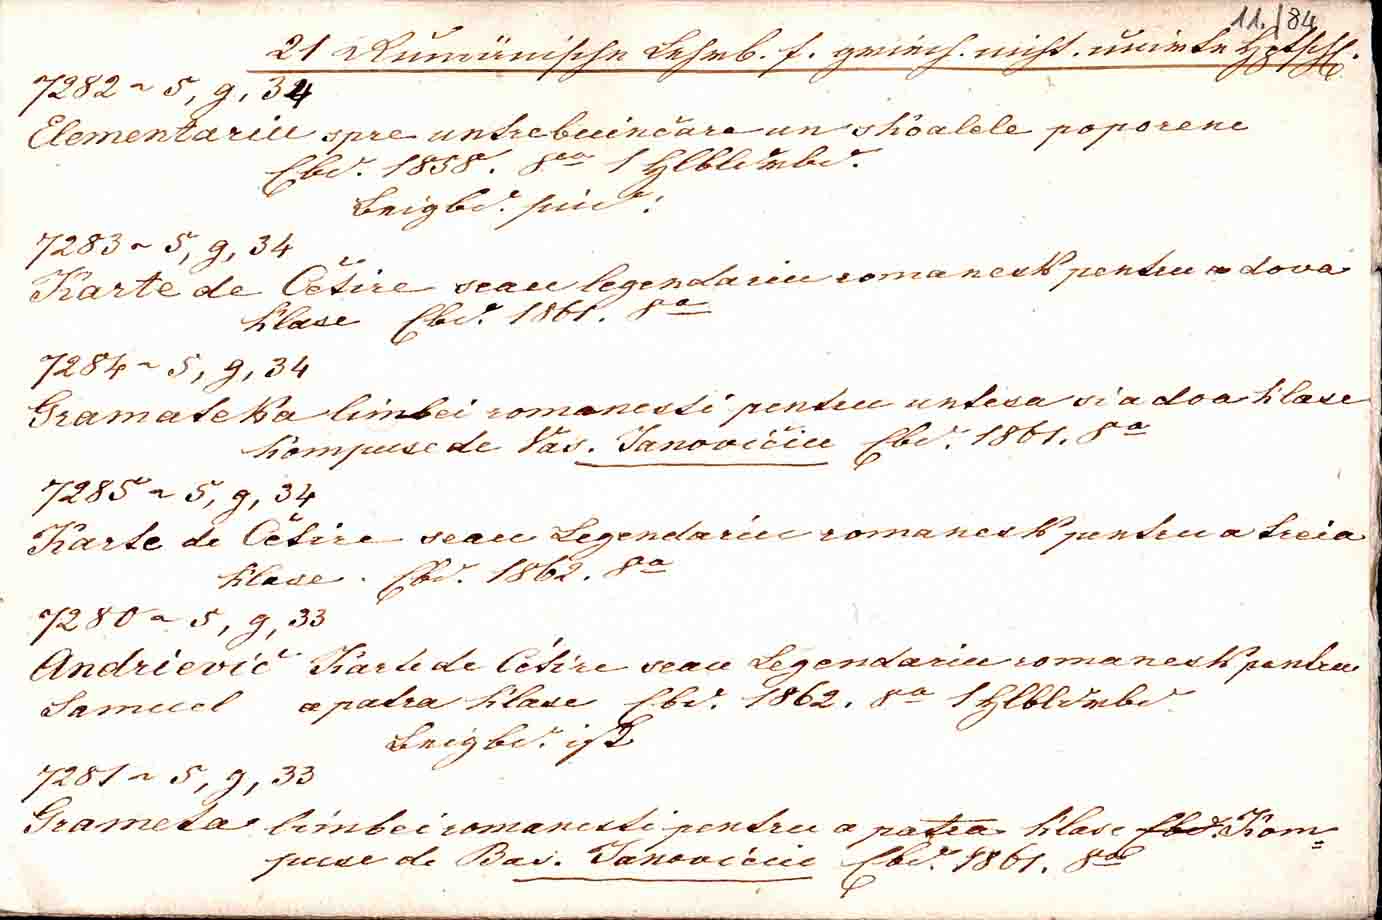 11./84
21 Rumänische Lehrb. f. griech. nicht. unirte Hptsch.
7282 ~ 5, g, 34
Elementariu spre untrebuinčare un skoalele poporene
Ebd. 1858. 8va 1 Hlbldrbd.
Beigbd. sind:
7283 ~ 5, g, 34
Karte de Četire seau legendariu romanesk pentru a dova
klase Ebd. 1861. 8a
7284 ~ 5, g, 34
Gramateka limbei romanesti pentru untesa si a doa klase
kompuse de Vas. Janovičiu Ebd. 1861. 8a
7285 ~ 5, g, 34
Karte de Četire seau Legendariu romanesk pentru a treia
klase. Ebd. 1862. 8a
7280 ~ 5, g, 33
Andrievič Karte de Cétire seau Legendariu romanesk pentru
Samuel a patra klase Ebd. 1862. 8a 1 Hlbldrbd.
Beigbd. ist
7281 ~ 5, g, 33
Grameta limbei romanesti pentru a patra klase Ebd. Kom=
puse de Bas. Janovičiu Ebd. 1861. 8a